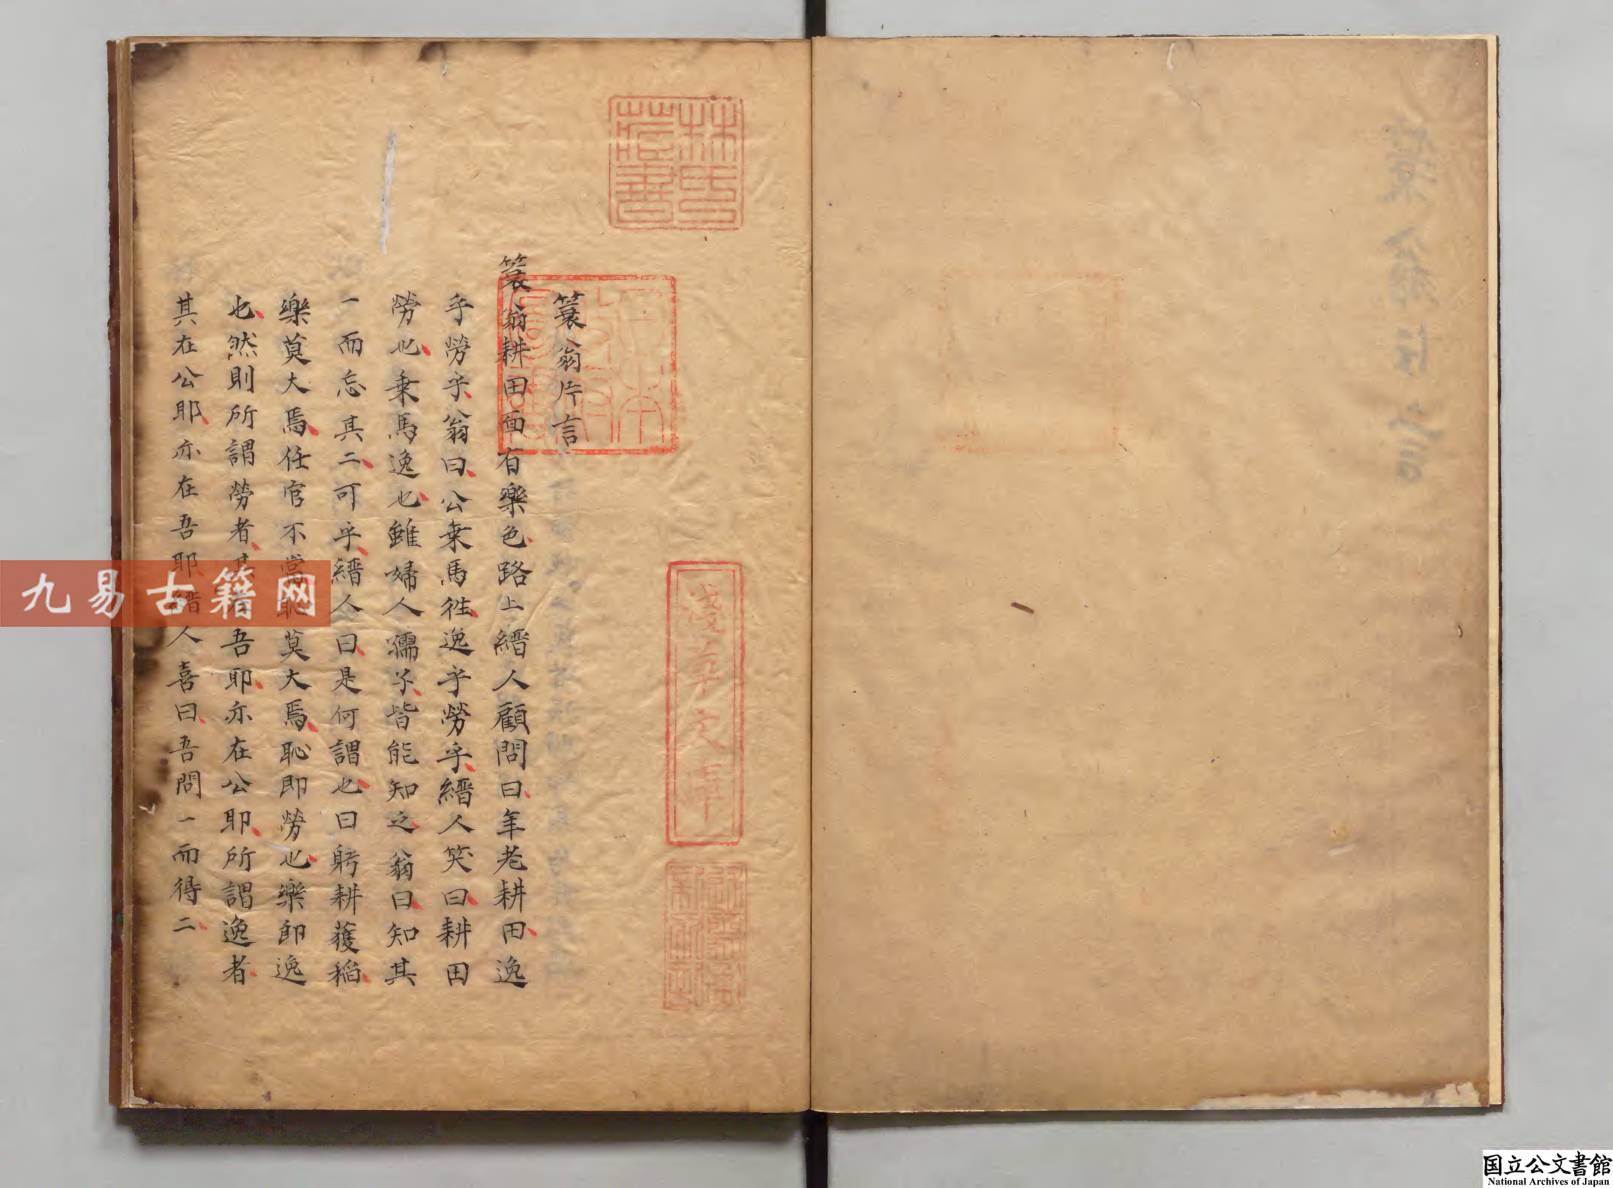 簑翁片言
簑翁耕田面有樂色路上縉人顧問曰年老耕田逸
乎勞乎翁曰公乗馬徃逸乎勞乎縉人笑曰耕田
勞也乗馬逸也雖婦人孺子皆能知之翁曰知其
一而忘其二可乎縉人曰是何謂也曰躬耕獲稲
樂莫大焉任官不當恥莫大焉恥即勞也樂即逸
也然則所謂勞者其在吾耶亦在公耶所謂逸者
其在公耶亦在吾耶縉人喜曰吾問一而得二
林氏藏書
日本政府圖書
淺草文庫
九易古籍网
国立公文書館
National Archives of Japan